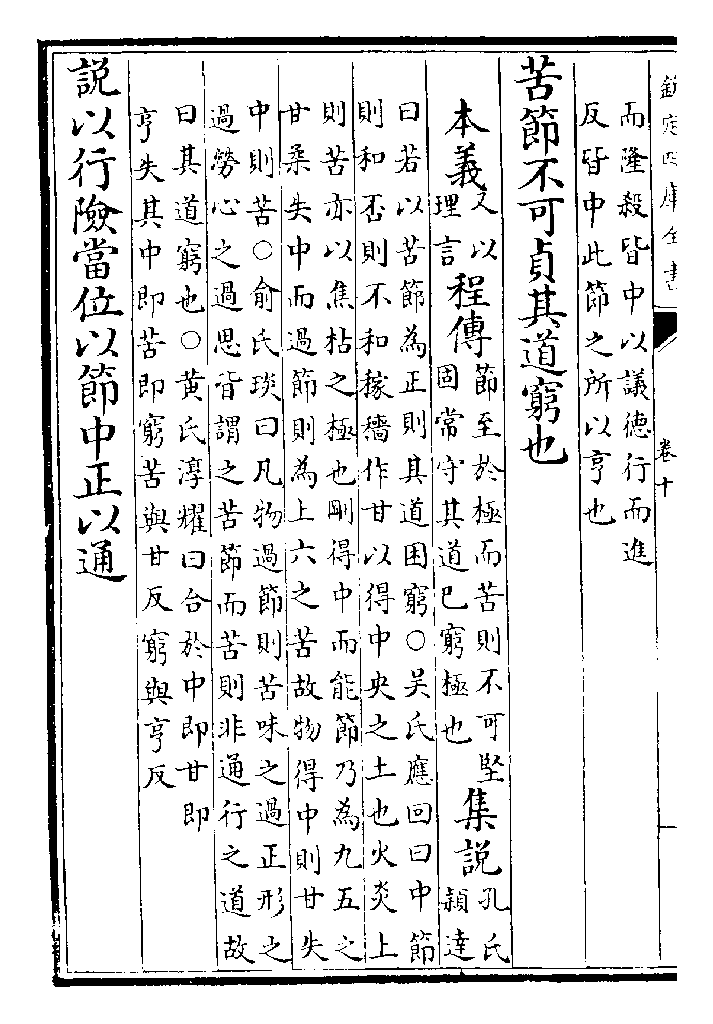 欽定四庫全書 卷十
而隆殺皆中以議德行而進
反皆中此節之所以亨也
苦節不可貞其道窮也
本義又以理言程傳節至於極而苦則不可堅固常守其道已窮極也集說孔氏穎達
曰若以苦節為正則其道困窮○吳氏應回曰中節
則和否則不和稼穡作甘以得中央之土也火炎上
則苦亦以焦枯之極也剛得中而能節乃為九五之
甘柔失中而過節則為上六之苦故物得中則甘失
中則苦○俞氏琰曰凡物過節則苦味之過正形之
過勞心之過思皆謂之苦節而苦則非通行之道故
曰其道窮也○黃氏淳耀曰合於中即甘即
亨失其中即苦即窮苦與甘反窮與亨反
說以行險當位以節中正以通